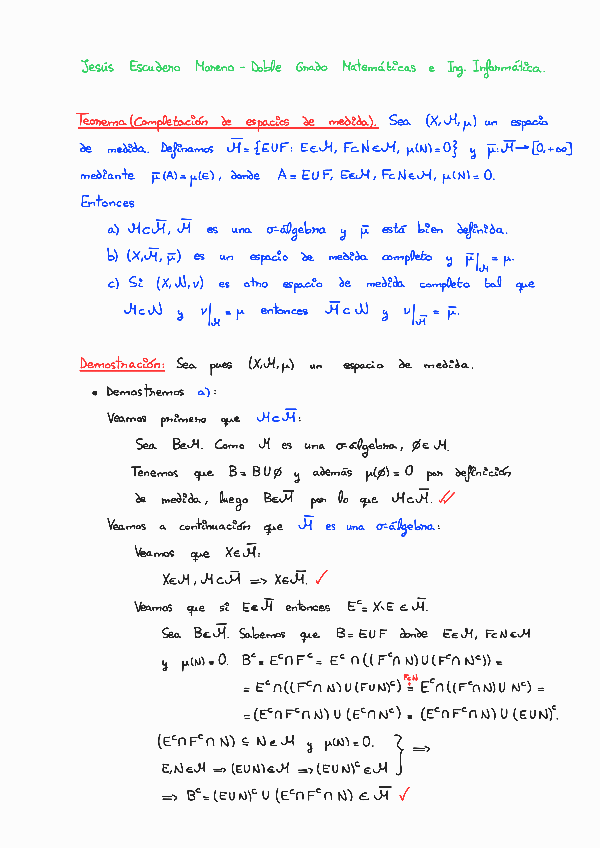 Jesús Escudero Moreno - Doble Grado Matemáticas e Ing. Informática.
Teorema (Completación de espacios de medida). Sea (X, ℳ, μ) un espacio
de medida. Definamos ℳ̅ = {E∪F : E∈ℳ, F⊂N∈ℳ, μ(N)=0} y μ̅: ℳ̅ → [0,+∞]
mediante μ̅(A) = μ(E), donde A = E∪F, E∈ℳ, F⊂N∈ℳ, μ(N)=0.
Entonces
a) ℳ⊂ℳ̅, ℳ̅ es una σ-álgebra y μ̅ está bien definida.
b) (X, ℳ̅, μ̅) es un espacio de medida completo y μ̅|ℳ = μ.
c) Si (X, 𝒩, ν) es otro espacio de medida completo tal que
ℳ⊂𝒩 y ν|ℳ = μ entonces ℳ̅⊂𝒩 y ν|ℳ̅ = μ̅.
Demostración: Sea pues (X, ℳ, μ) un espacio de medida.
• Demostremos a):
Veamos primero que ℳ⊂ℳ̅:
Sea B∈ℳ. Como ℳ es una σ-álgebra, ∅∈ℳ.
Tenemos que B = B∪∅ y además μ(∅)=0 por definición
de medida, luego B∈ℳ̅ por lo que ℳ⊂ℳ̅. ✓✓
Veamos a continuación que ℳ̅ es una σ-álgebra:
Veamos que X∈ℳ̅:
X∈ℳ, ℳ⊂ℳ̅ => X∈ℳ̅. ✓
Veamos que si E∈ℳ̅ entonces Eᶜ = X\E ∈ ℳ̅.
Sea B∈ℳ̅. Sabemos que B = E∪F donde E∈ℳ, F⊂N∈ℳ
y μ(N)=0. Bᶜ = Eᶜ∩Fᶜ = Eᶜ∩((Fᶜ∩N)∪(Fᶜ∩Nᶜ)) =
F⊂N
= Eᶜ∩((Fᶜ∩N)∪(F∪N)ᶜ) = Eᶜ∩((Fᶜ∩N)∪Nᶜ) =
= (Eᶜ∩Fᶜ∩N)∪(Eᶜ∩Nᶜ) = (Eᶜ∩Fᶜ∩N)∪(E∪N)ᶜ.
(Eᶜ∩Fᶜ∩N) ⊆ N∈ℳ y μ(N)=0. } =>
E,N∈ℳ => (E∪N)∈ℳ => (E∪N)ᶜ∈ℳ
=> Bᶜ = (E∪N)ᶜ∪(Eᶜ∩Fᶜ∩N) ∈ ℳ̅ ✓